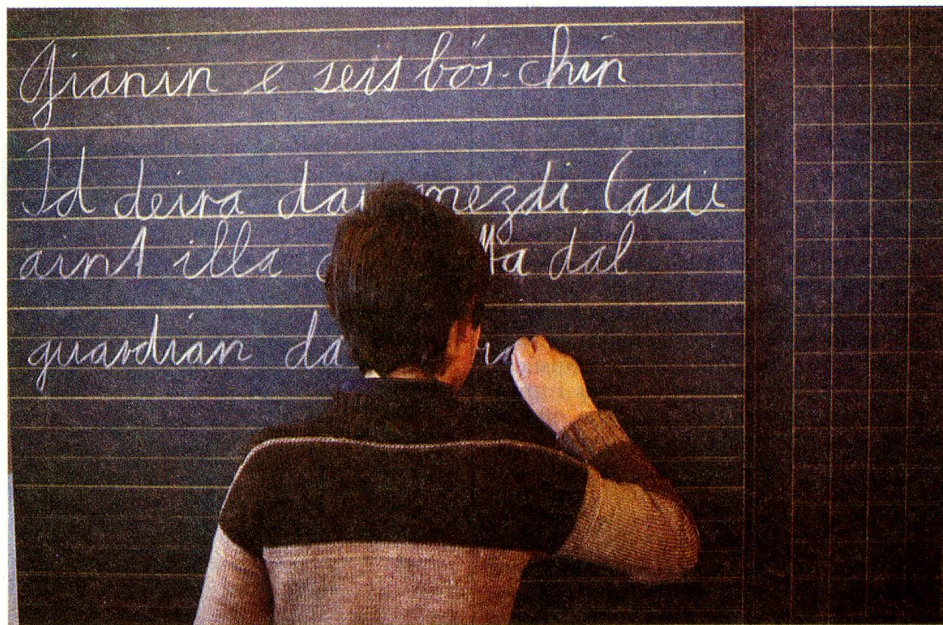 Gianin e seis bös-chin
Id deira mezdi. Casü
aint illa dal
guardian da